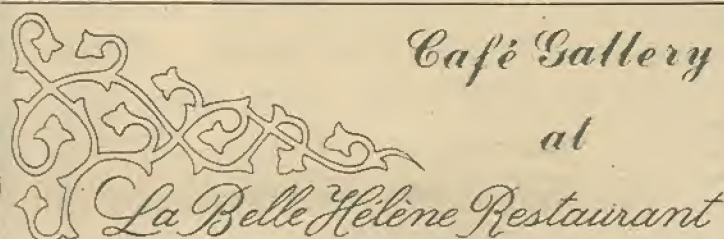 Café Gallery
at
La Belle Hélène Restaurant